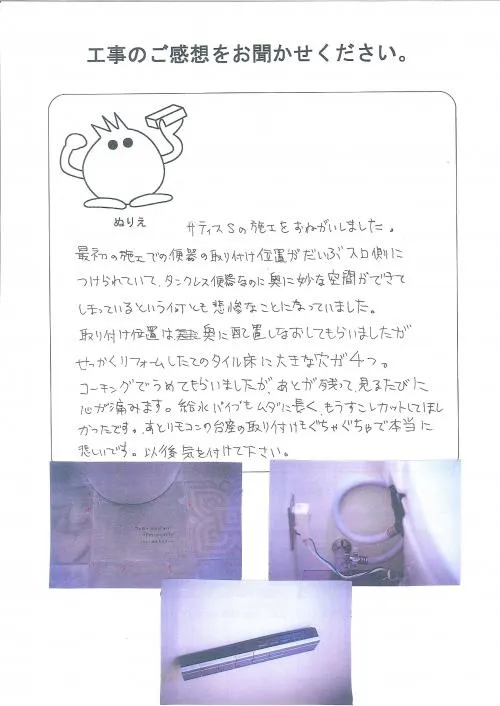 工事のご感想をお聞かせください。
ぬりえ
サティスSの施工をおねがいしました。
最初の施工での便器の取り付け位置がだいぶ入口側に
つけられていて、タンクレス便器なのに奥に妙な空間ができて
しまっているという何とも悲惨なことになっていました。
取り付け位置は奥に配置しなおしてもらいましたが
せっかくリフォームしたてのタイル床に大きな穴が4つ。
コーキングでうめてもらいましたが、あとが残って見るたびに
心が痛みます。給水パイプもムダに長く、もうすこしカットしてほし
かったです。あとリモコンの台座の取り付けもぐちゃぐちゃで本当に
悲しいです。以後気を付けて下さい。